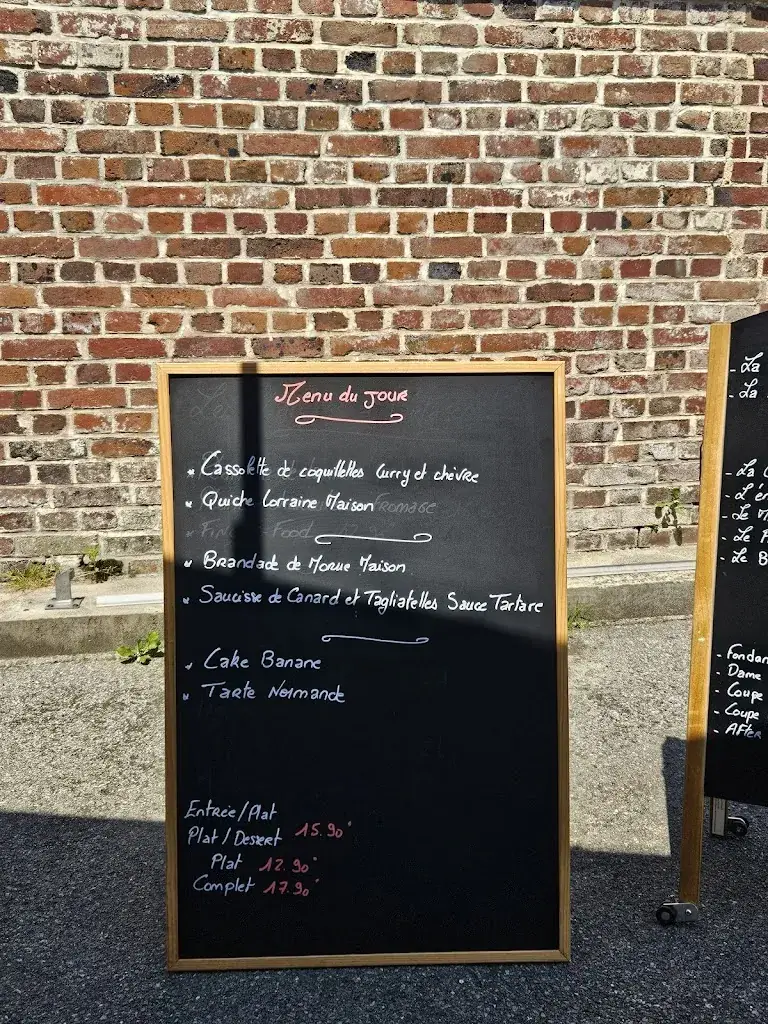 Menu du jour
* Cassolette de coquillettes curry et chèvre
* Quiche Lorraine Maison
* Brandade de Morue Maison
* Saucisse de Canard et Tagliatelles Sauce Tartare
* Cake Banane
* Tarte Normande
Entrée/Plat
Plat/Dessert 15.90
Plat 12.90
Complet 17.90
- La
- La
- La
- Le
- Le
- Le B
- Fondan
- Dame
- Coupe
- Coupe
- After